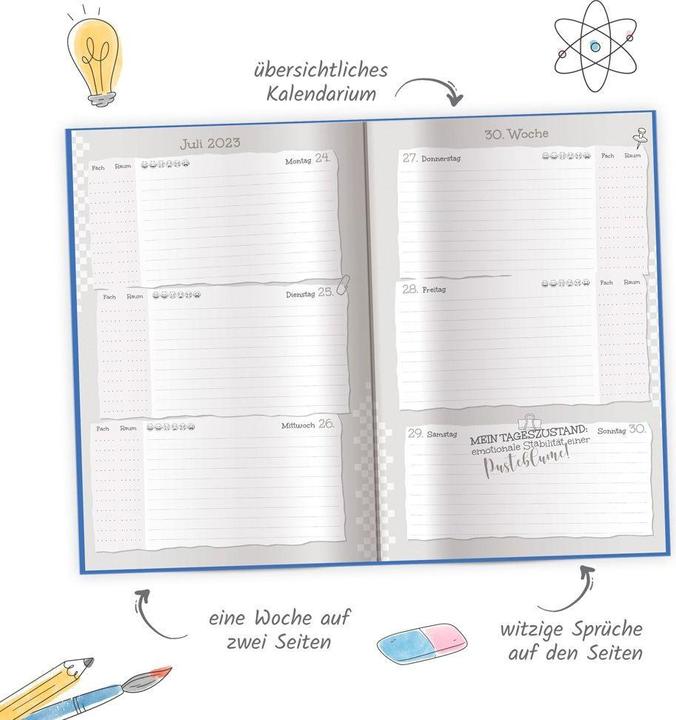 übersichtliches
Kalendarium
Juli 2023
Fach Raum Montag 24.
Fach Raum Dienstag 25.
Fach Raum Mittwoch 26.
30. Woche
27. Donnerstag Fach Raum
28. Freitag Fach Raum
29. Samstag Sonntag 30.
MEIN TAGESZUSTAND:
emotionale Stabilität einer
Pusteblume!
eine Woche auf
zwei Seiten
witzige Sprüche
auf den Seiten